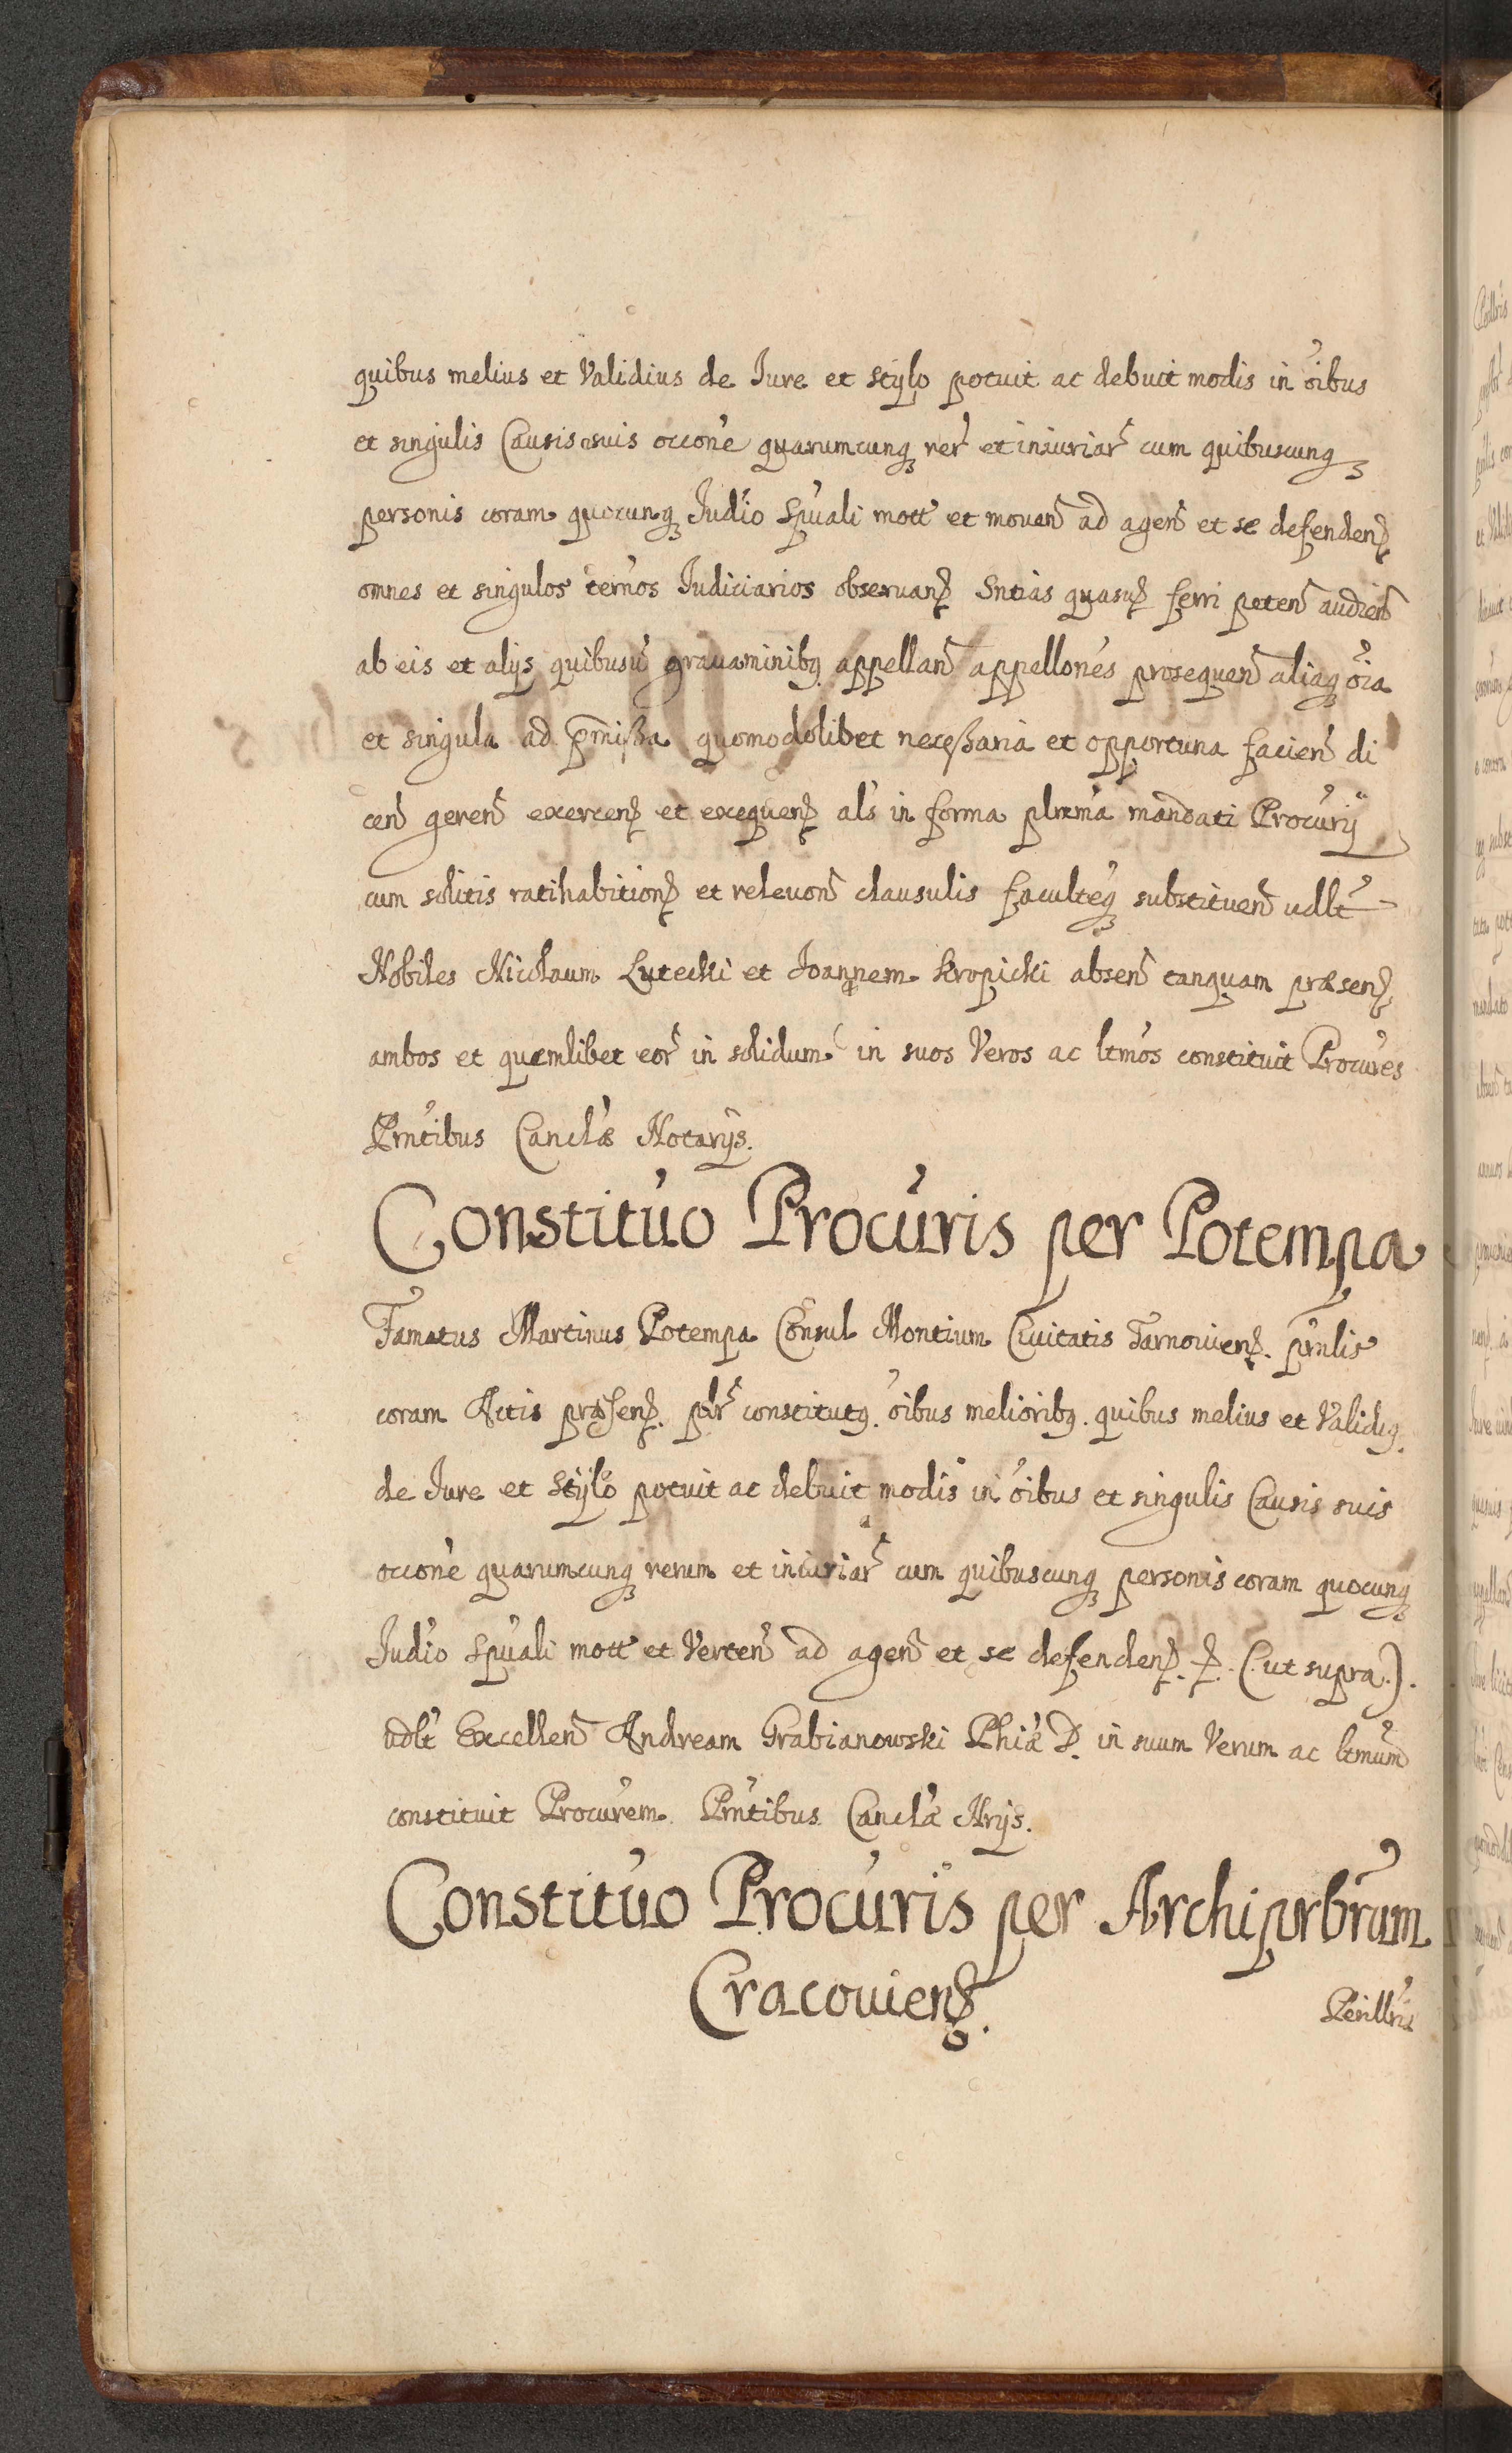 quibus melius et Validius de Iure et stylo potuit ac debuit modis in oibus
et singulis Causis suis occone quarumcunq rer et iniuriar cum quibuscunq
personis coram quocunq Iudio Spuali mott et mouen ad agen et se defenden
omnes et singulos termos Iudiciarios obseruan Sntias quasuis ferri peten audien
ab eis et alijs quibusuis grauaminibq appellan appellones prosequen aliaq oia
et singula ad pmissa quomodolibet necessaria et opportuna facien di
cen geren exercen et exequen als in forma plnma mandati Procurij
cum solitis ratihabition et releuon clausulis faculteq substituen udlt
Nobiles Nicolaum Lutecki et Joannem Kropicki absen tanquam præsen
ambos et quemlibet eor in solidum in suos Veros ac ltmos constituit Procures
Prntibus Canclæ Notarijs.
Constituo Procuris per Potempa
Famatus Martinus Potempa Consul Montium Ciuitatis Tarnouien. prnlis
coram Actis præsen. plr constitutq. oibus melioribq. quibus melius et Validiq.
de Iure et Stylo potuit ac debuit modis in oibus et singulis Causis suis
occone quarumcunq rerum et iniuriar cum quibuscunq personis coram quocunq
Iudio Spuali mott et Verten ad agen et se defenden. (ut supra.).
udlt Excellen Andream Grabianowski Phiæ D. in suum Verum ac ltmum
constituit Procurem Prntibus Canclæ Nrijs.
Constituo Procuris per Archiprbrum
Cracouien.
Perillris